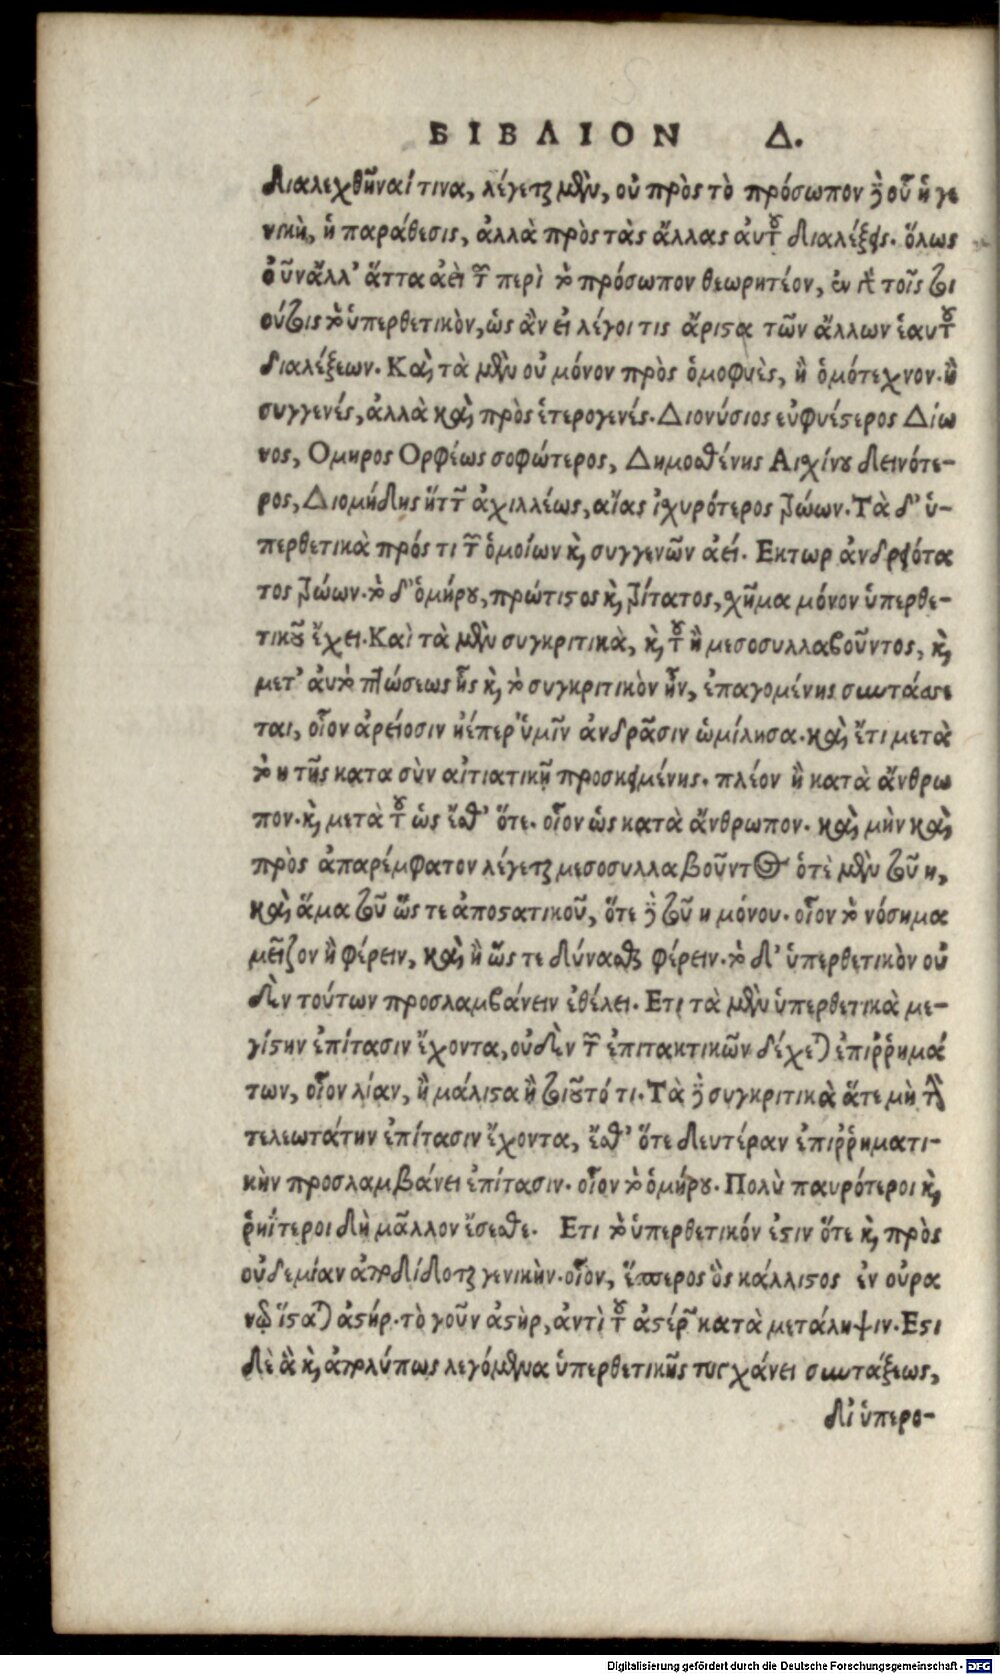 ΒΙΒΛΙΟΝ Δ.
διαλεχθῆναί τινα, λέγεται μὲν, οὐ πρὸς τὸ πρόσωπον δὲ οὗ ἡ γε
νικὴ, ἡ παράθεσις, ἀλλὰ πρὸς τὰς ἄλλας αὐτοῦ διαλέξεις. ὅλως
οὖν ἄλλ' ἄττα ἀεὶ τῶν περὶ τὸ πρόσωπον θεωρητέον, ἐν
τὸ ὑπερθετικὸν, ὡς ἂν εἰ λέγοι τις ἄριστα τῶν ἄλλων ἑαυτοῦ
διαλέξεων. Καὶ τὰ μὲν οὐ μόνον πρὸς ὁμοφυὲς, ἢ ὁμότεχνον. ἢ
συγγενές, ἀλλὰ καὶ πρὸς ἑτερογενές. Διονύσιος εὐφυέστερος Δίω
νος, Ομηρος Ορφέως σοφώτερος, Δημοσθένης Αἰσχίνου δεινότε-
ρος, Διομήδης ἥττων ἀχιλλέως, αἴας ἰσχυρότερος ζώων. Τὰ δ' ὑ-
περθετικὰ πρός τι τῶν ὁμοίων καὶ συγγενῶν ἀεί. Εκτωρ ἀνδρειότα
τος ζώων. τὸ δ' ὁμήρου, πρώτιστος καὶ ζίτατος, σχῆμα μόνον ὑπερθε-
τικοῦ ἔχει. Καὶ τὰ μὲν συγκριτικὰ, καὶ τοῦ ἢ μεσοσυλλαβοῦντος, καὶ
μετ' αὐτὸ πτώσεως ἧς καὶ τὸ συγκριτικὸν ἦν, ἐπαγομένης συντάσσε
ται, οἷον ἀρείοσιν ἠέπερ ὑμῖν ἀνδράσιν ὡμίλησα. καὶ ἔτι μετὰ
τὸ ἢ τῆς κατα σὺν αἰτιατικῇ προσκειμένης. πλέον ἢ κατὰ ἄνθρω
πον. καὶ μετὰ τοῦ ὡς ἔσθ' ὅτε. οἷον ὡς κατὰ ἄνθρωπον. καὶ μὴν καὶ
πρὸς ἀπαρέμφατον λέγεται μεσοσυλλαβοῦντος ὁτὲ μὲν τοῦ η,
καὶ ἅμα τοῦ ὥς τε ἀποστατικοῦ, ὅτε δὲ τοῦ η μόνου. οἷον τὸ νόσημα
μεῖζον ἢ φέρειν, καὶ ἢ ὥς τε δύνασθαι φέρειν. τὸ δ' ὑπερθετικὸν οὐ
δὲν τούτων προσλαμβάνειν ἐθέλει. Ετι τὰ μὲν ὑπερθετικὰ με-
γίστην ἐπίτασιν ἔχοντα, οὐδὲν τῶν ἐπιτακτικῶν δέχεται ἐπιῤῥημά
των, οἷον λίαν, ἢ μάλιστα ἢ τοιοῦτό τι. Τὰ δὲ συγκριτικὰ ἅτε μὴ τὴν
τελεωτάτην ἐπίτασιν ἔχοντα, ἔσθ' ὅτε δευτέραν ἐπιῤῥηματι-
κὴν προσλαμβάνει ἐπίτασιν. οἷον τὸ ὁμήρου. Πολὺ παυρότεροι καὶ
ῥηΐτεροι δὴ μᾶλλον ἔσεσθε. Ετι τὸ ὑπερθετικόν ἐστιν ὅτε καὶ πρὸς
οὐδεμίαν ἀποδίδοται γενικὴν. οἷον, ἕσπερος ὃς κάλλιστος ἐν οὐρα
νῷ ἵσταται ἀστήρ. τὸ γοῦν ἀστὴρ, ἀντὶ τοῦ ἀστέρων κατὰ μετάληψιν. Εστι
δὲ ἃ καὶ ἀπολύτως λεγόμενα ὑπερθετικῆς τυγχάνει συντάξεως,
δι' ὑπερο-
Digitalisierung gefördert durch die Deutsche Forschungsgemeinschaft - DFG